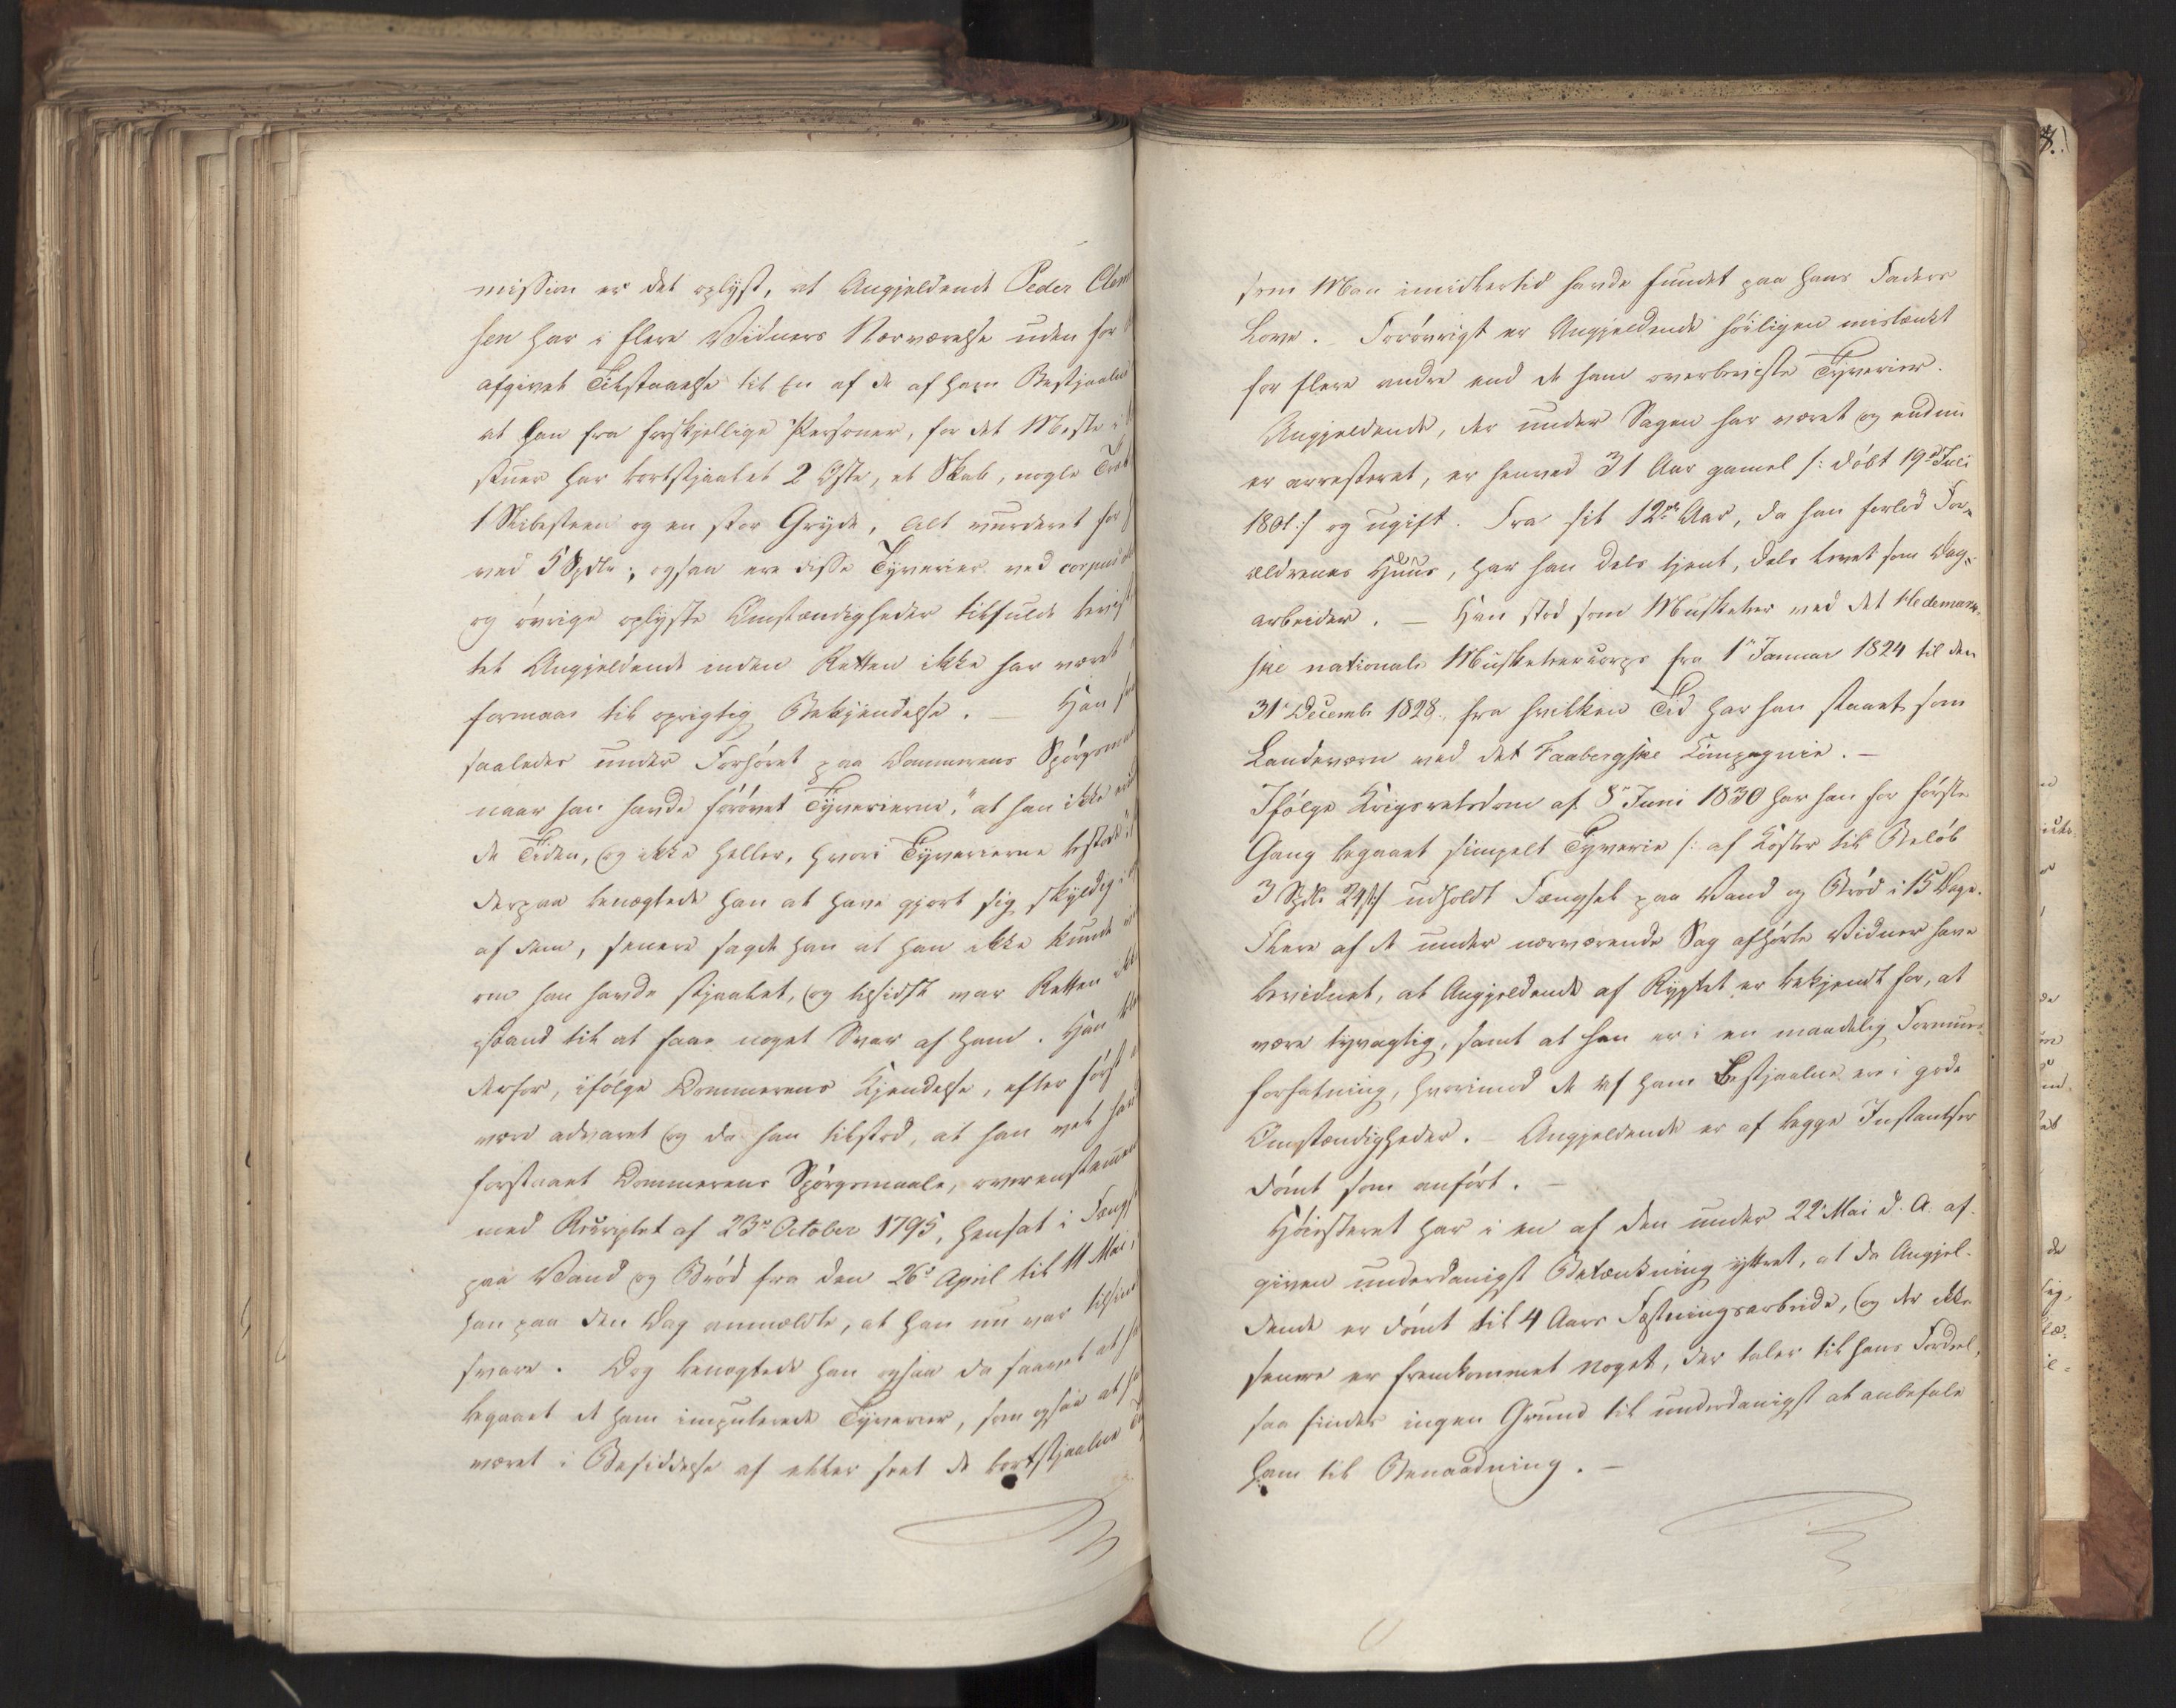 mission er det oplyst, at Angjeldende Peder Clem
sen har i flere Vidners Nærværelse uden for
afgivet Tilstaaelse til En af de af ham Bestjaalne
at han fra forskjellige Personer, for det Meste i
stuer har bortstjaalet 2 Oste, et Skab, nogle
1 Slibesteen og en stor Gryde, Alt vurderet for
ved 5 Spdlr; ogsaa ere disse Tyverier ved corpus
og øvrige oplyste Omstændigheder tilfulde bevist
tet Angjeldende inden Retten ikke har været
formaae til oprigtig Bekjendelse. – Han
saaledes under Forhøret paa Dommerens Spørgsmaal
naar han havde forøvet Tyverierne, "at han ikke
de Tiden, og ikke heller, hvori Tyverierne bestode"
derpaa benægtede han at have gjort sig skyldig i
af dem, senere sagde han at han ikke kunde
om han havde stjaalet, og tilsidst var Retten
istand til at faae noget Svar af ham. Han
derfor, ifølge Dommerens Kjendelse, efter først
være advaret og da han tilstod, at han vel
forstaaet Dommerens Spørgsmaale, overenstemmende
med Rescriptet af 23de October 1795, hensat i Fængs
paa Vand og Brød fra den 26de April til 11 Mai,
han paa den Dag anmældte, at han nu var
svare. Dog benægtede han ogsaa da saavel at
begaaet de ham imputerede Tyverier, som ogsaa at
været i Besiddelse af eller seet de bortstjaalne
som Man imidlertid havde fundet paa hans Faders
Love. Forøvrigt er Angjeldende høiligen mistænkt
for flere andre end de ham overbeviste Tyverier.
Angjeldende, der under Sagen har været og endnu
er arresteret, er henved 31 Aar gamel /: døbt 19de Juli
1801 :/ og ugift. Fra sit 12te Aar, da han forlod For-
ældrenes Huus, har han dels tjent, dels levet som Dag-
arbeider. – Han stod som Musketeer ved det Hedemark-
ske nationale Musketeercorps fra 1de Januar 1824 til den
31de Decembr 1828, fra hvilken Tid har han staaet som
Landeværn ved det Faabergske Compagnie. –
Ifølge Krigsretsdom af 8de Juni 1830 har han for første
Gang begaaet simpelt Tyverie /: af Koster til Beløb
3 Spdlr 24 s :/ udholdt Fængsel paa Vand og Brød i 15 Dage.
Flere af de under nærværende Sag afhørte Vidner have
bevidnet, at Angjeldende af Rygtet er bekjendt for, at
være tyvagtig, samt at han er i en maadelig Formues-
forfatning, hvorimod de af ham Bestjaalne ere i gode
Omstændigheder. – Angjeldende er af begge Instantser
dømt som anført. –
Høiesteret har i en af den under 22de Mai d. A. af-
given underdanigst Betænkning yttret, at da Angjel-
dende er dømt til 4 Aars Fæstningsarbeide, og der ikke
senere er fremkommet noget, der taler til hans Fordeel,
saa findes ingen Grund til underdanigst at anbefale
ham til Benaadning. –